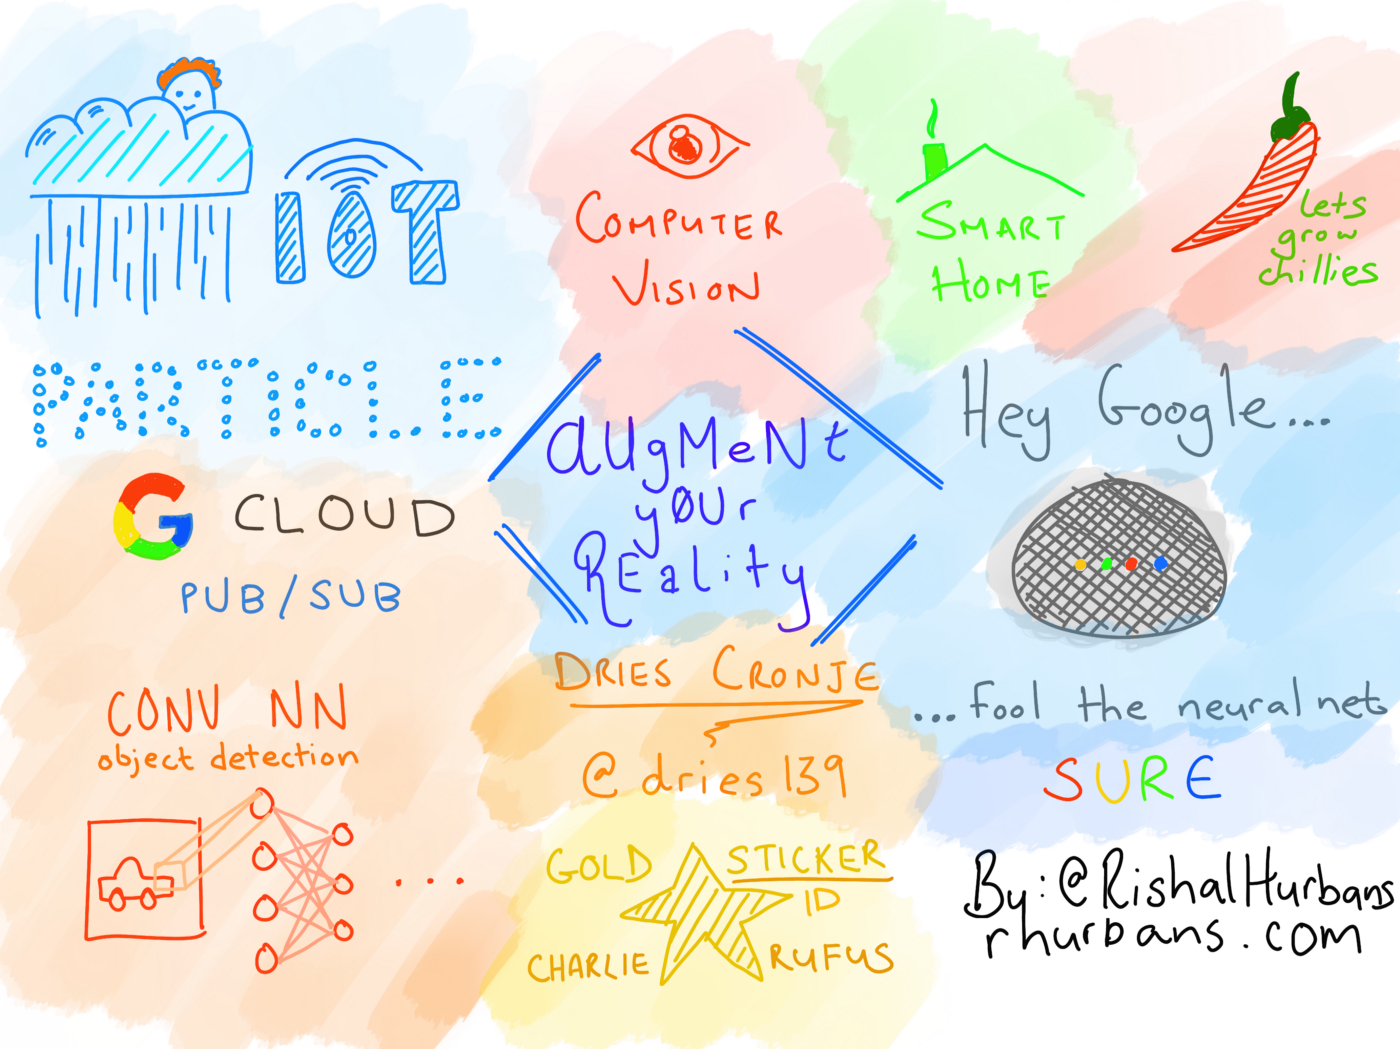 IOT
PARTICLE
G CLOUD
PUB/SUB
CONV NN
object detection
...
COMPUTER
VISION
SMART
HOME
Lets
grow
chillies
aUgMeNt
y0Ur
REality
DRIES CRONJE
@dries139
GOLD STICKER
ID
CHARLIE RUFUS
Hey Google...
...fool the neural net
SURE
By:@RishalHurbans
rhurbans.com